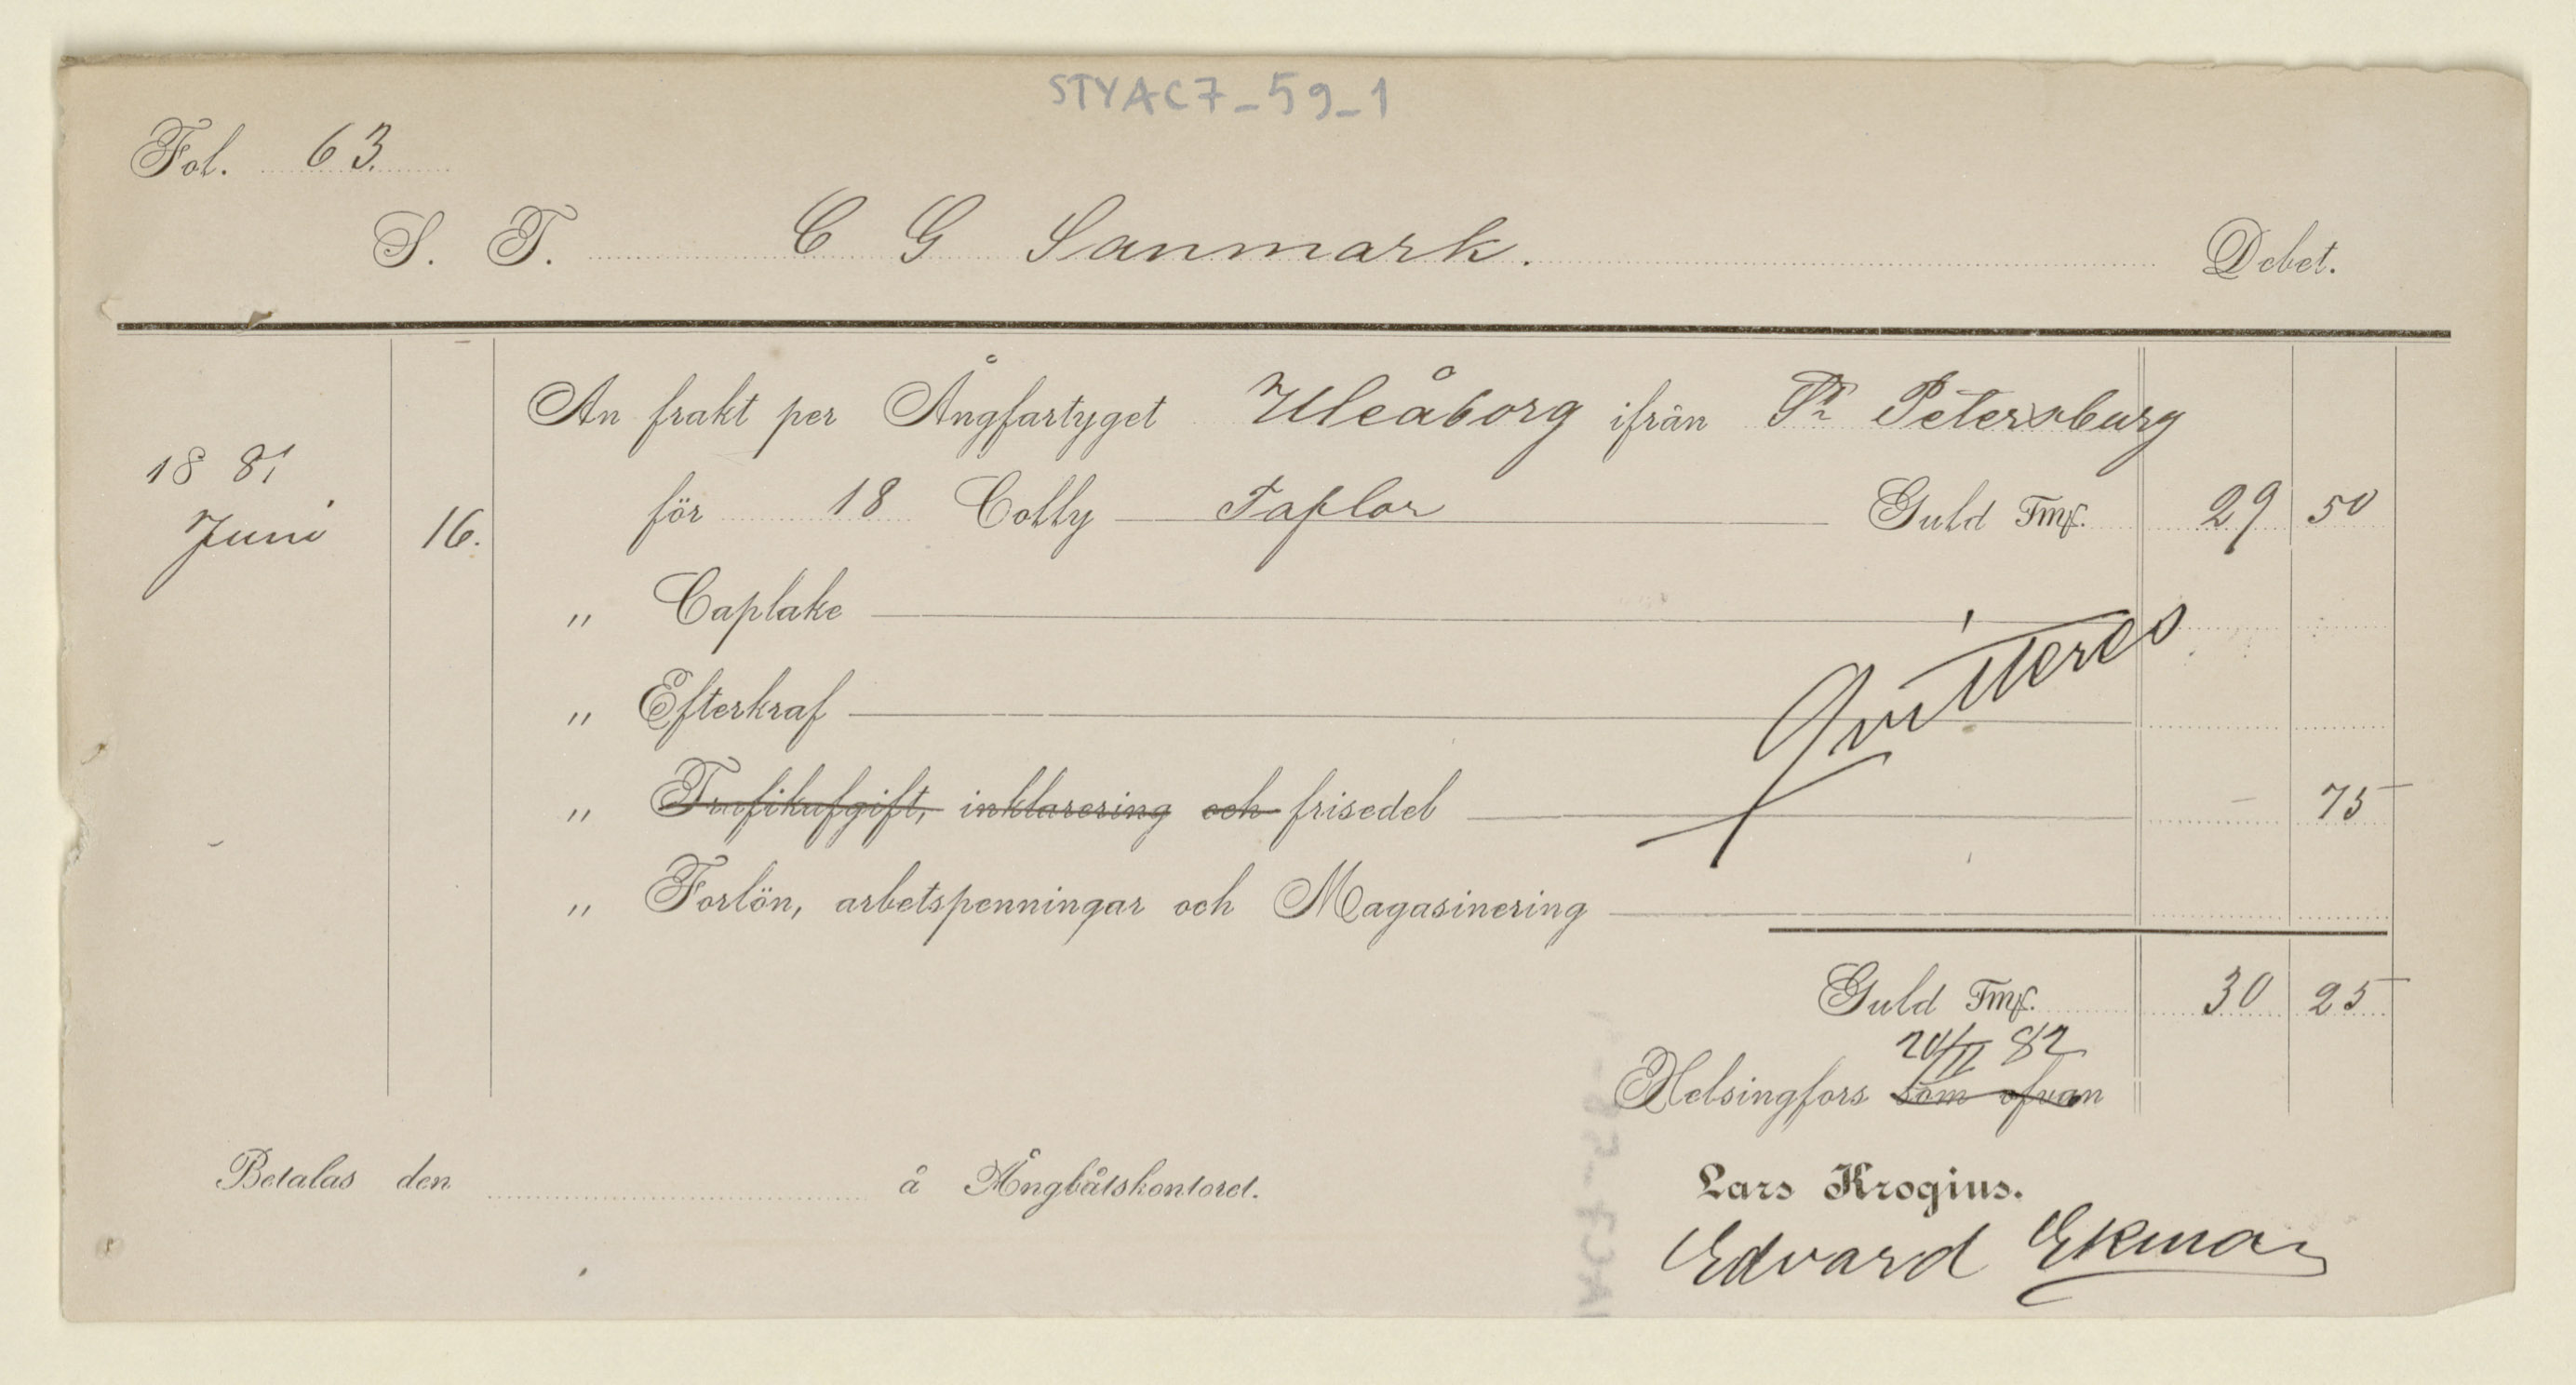 STYAC7_59_1
Fol. 63.
S. T. C G Sanmark. Debet.
An frakt per Ångfartyget Uleåborg ifrån St Petersburg
1881
Juni 16. för 18 Colly Taflor Guld Tmf. 29 50
„ Caplake
„ Efterkraf
Qvitteras
„ Trafikafgift, inklarering och frisedel — 75
„ Forlön, arbetspenningar och Magasinering
Guld Tmf. 30 25
20/II 82
Helsingfors som ofvan
Betalas den å Ångbåtskontoret.
Lars Krogius.
Edvard Ekman